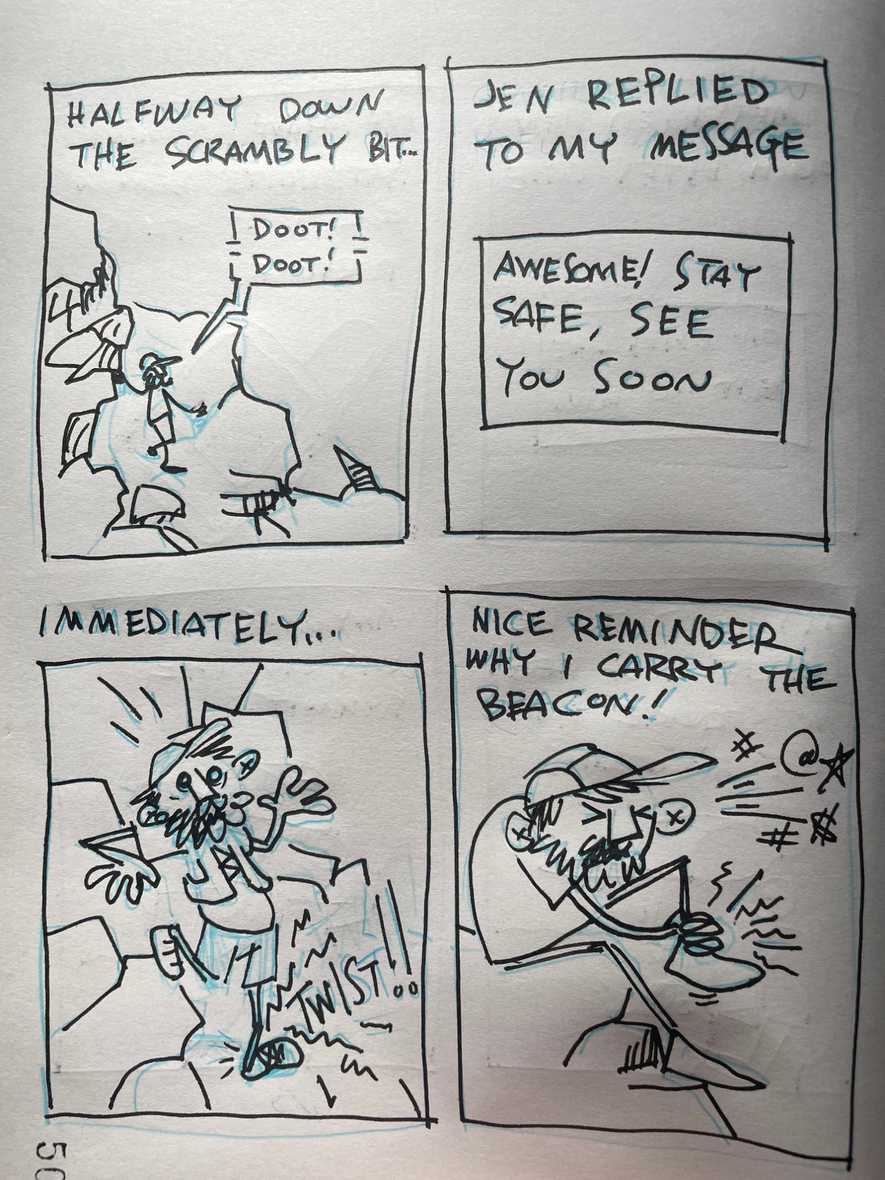 HALFWAY DOWN
THE SCRAMBLY BIT...
DOOT!
DOOT!
JEN REPLIED
TO MY MESSAGE
AWESOME! STAY
SAFE, SEE
YOU SOON
IMMEDIATELY...
TWIST!!
NICE REMINDER
WHY I CARRY THE
BEACON!
#@★
#$
50